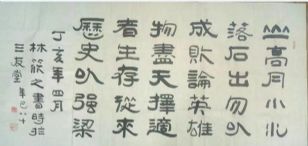 山高月小水
落石出勿以
成敗論英雄
物盡天擇適
者生存從來
歷史以强梁
丁亥年四月
林筱之書時於
三友堂年已八十